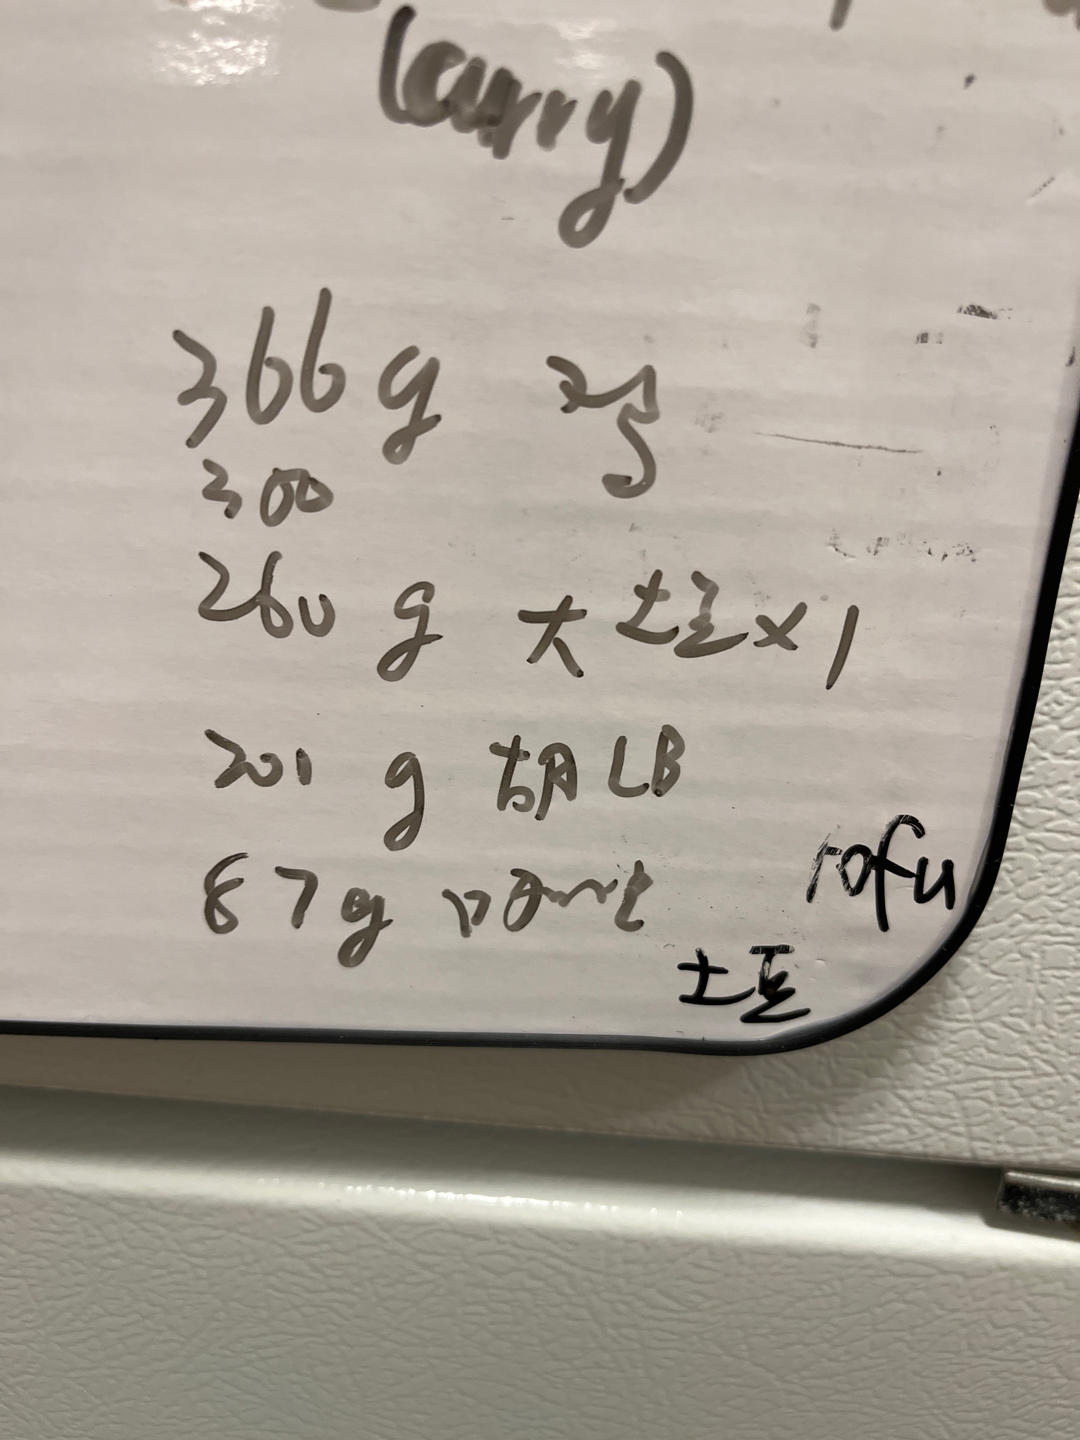 (curry)
366 g 鸡
300
260 g 大土豆×1
201 g 胡LB
87g
tofu
土豆